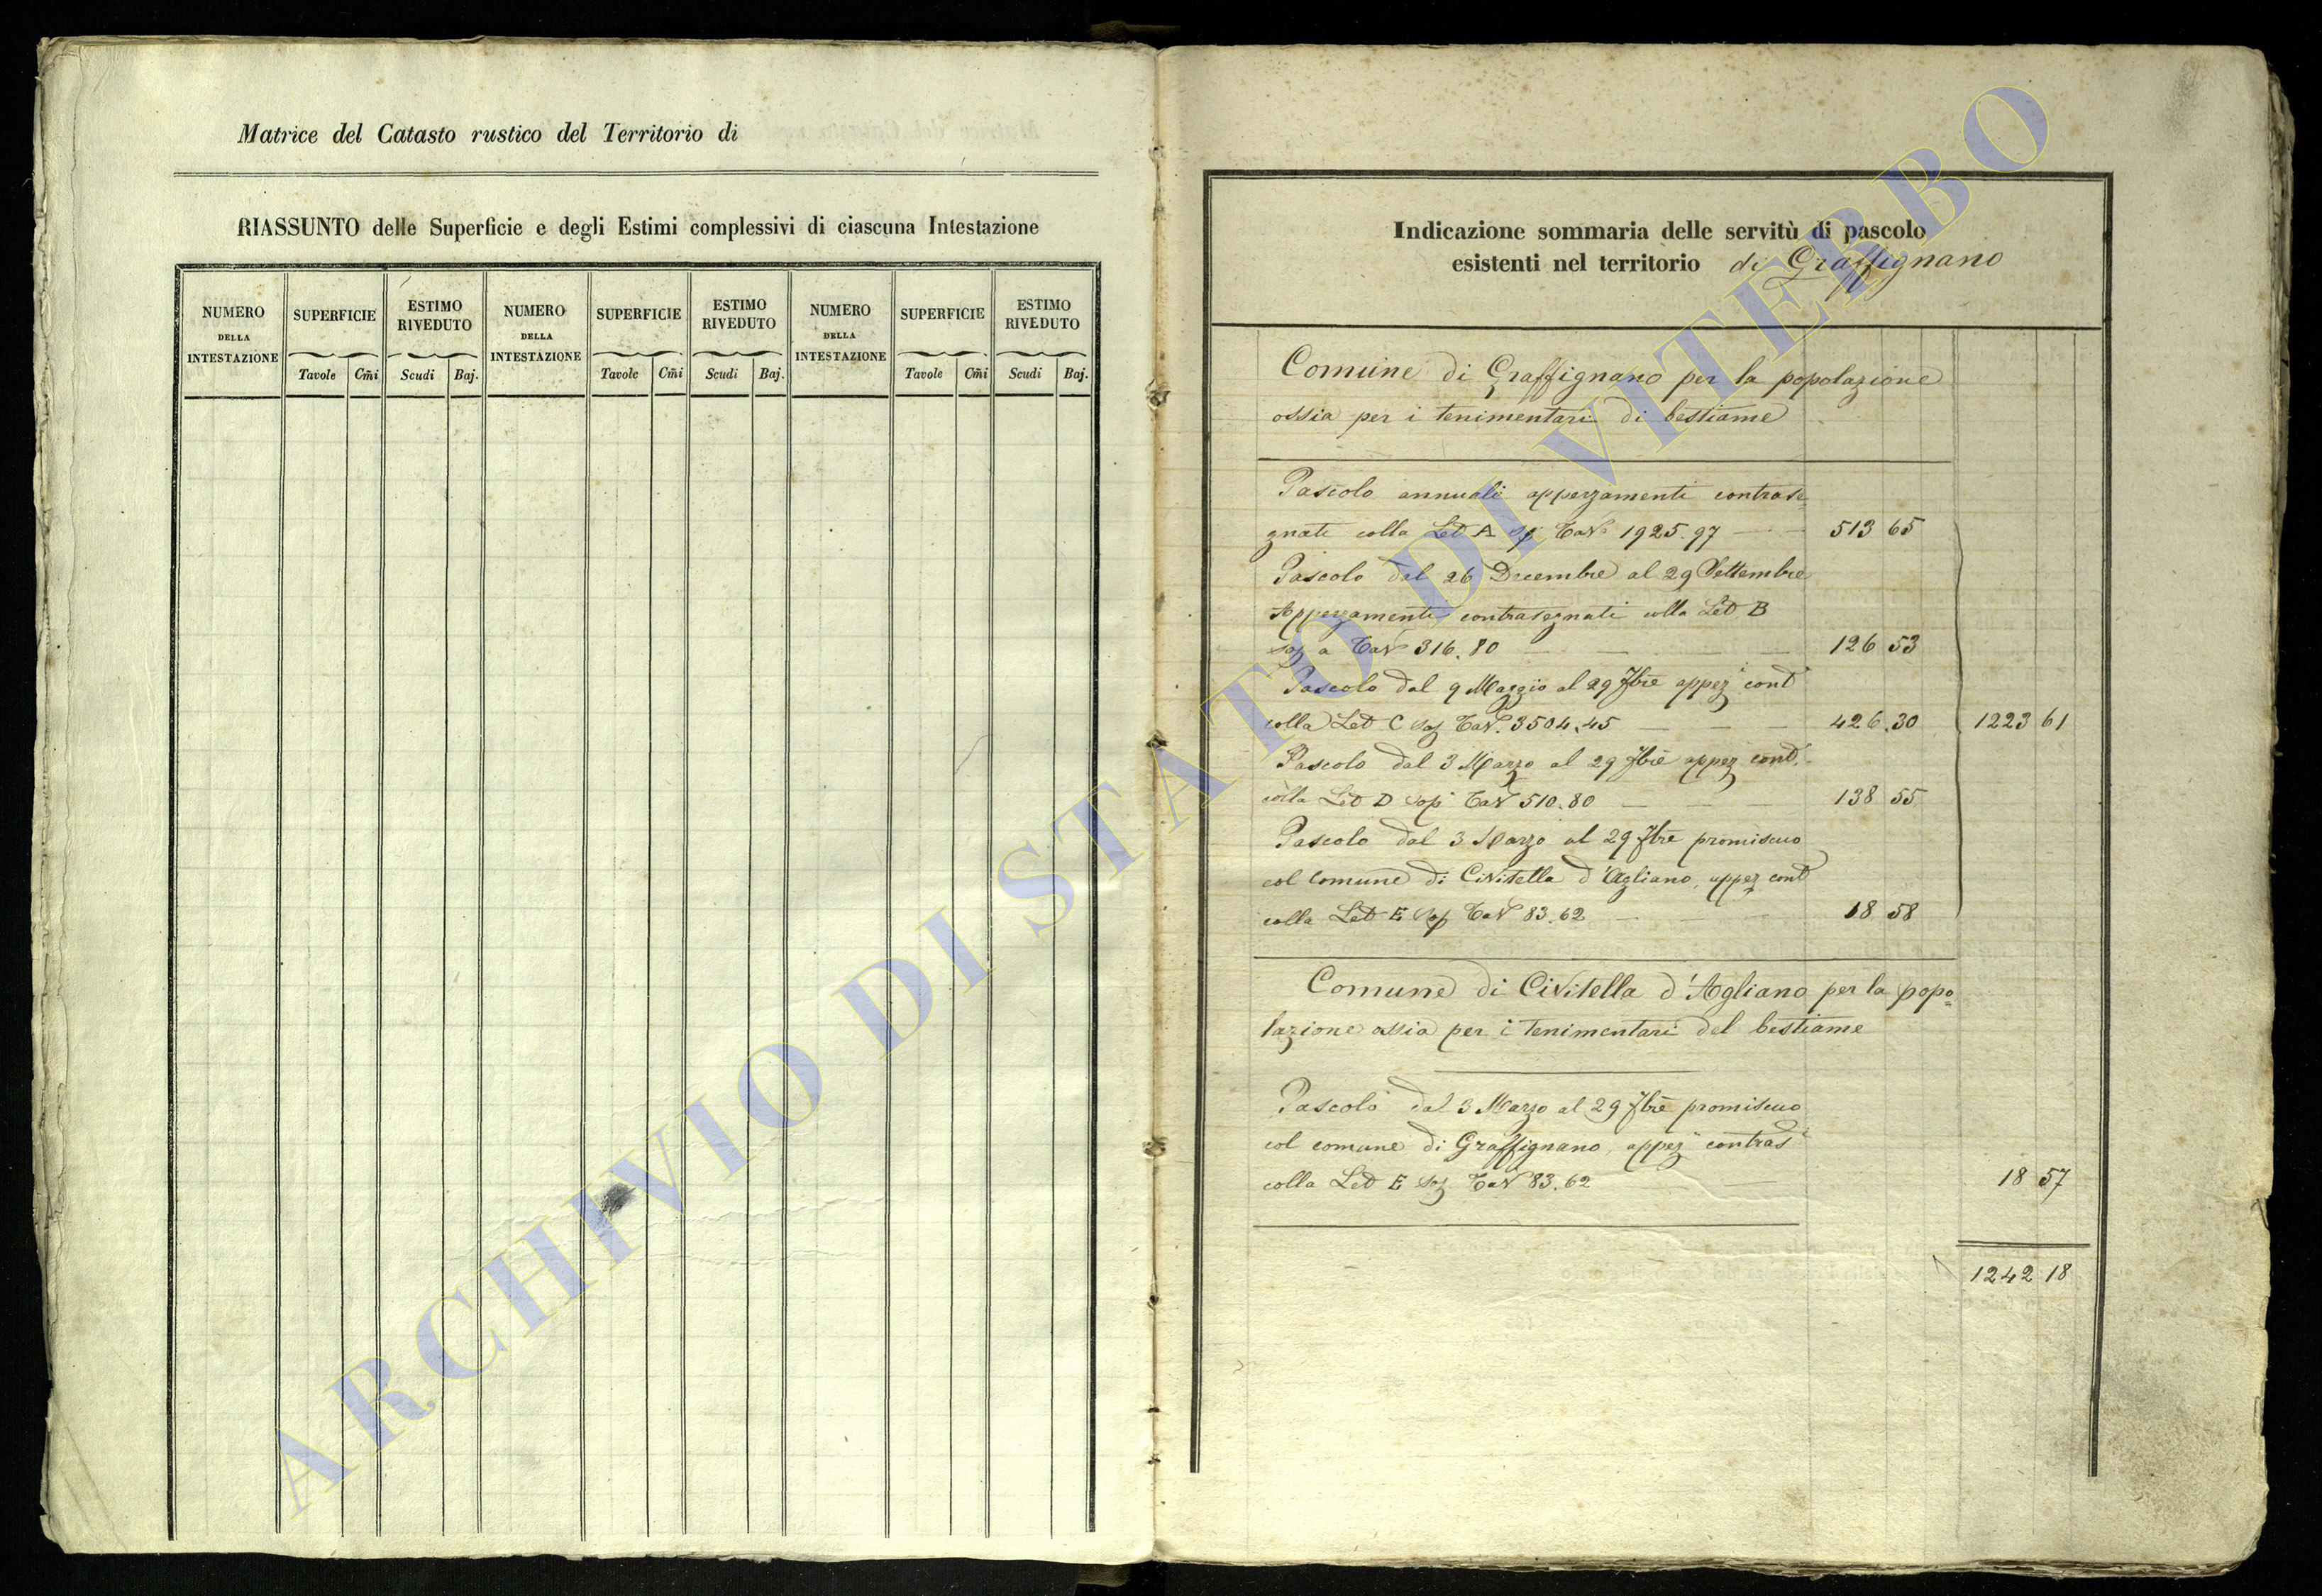 Matrice del Catasto rustico del Territorio di
RIASSUNTO delle Superficie e degli Estimi complessivi di ciascuna Intestazione
NUMERO DELLA INTESTAZIONE SUPERFICIE ESTIMO RIVEDUTO NUMERO DELLA INTESTAZIONE SUPERFICIE ESTIMO RIVEDUTO NUMERO DELLA INTESTAZIONE SUPERFICIE ESTIMO RIVEDUTO
Tavole Cm̃i Scudi Baj. Tavole Cm̃i Scudi Baj. Tavole Cm̃i Scudi Baj.
Indicazione sommaria delle servitù di pascolo
esistenti nel territorio di Graffignano
Comune di Graffignano per la popolazione
ossia per i tenimentari di bestiame
Pascolo annuali appezzamenti contrase
gnati colla Let A Tav 1925.97 513 65
Pascolo dal 26 Decembre al 29 Settembre
Appezzamenti contrasegnati colla Let B
a Tav 316.80 126 53
Pascolo dal 9 Maggio al 29 7bre appez cont
colla Let C Tav. 3504.45 426.30 1223 61
Pascolo dal 3 Marzo al 29 7bre appez cont.
colla Let D sop Tav 510.80 138 55
Pascolo dal 3 Marzo al 29 7bre promiscuo
col Comune di Civitella d'Agliano, appez cont
colla Let E sop Tav 83.62 18 58
Comune di Civitella d'Agliano per la popo=
lazione ossia per i tenimentari del bestiame
Pascolo dal 3 Marzo al 29 7bre promiscuo
col comune di Graffignano, appez contras
colla Let E Tav 83.62 18 57
1242 18
ARCHIVIO DI STATO DI VITERBO